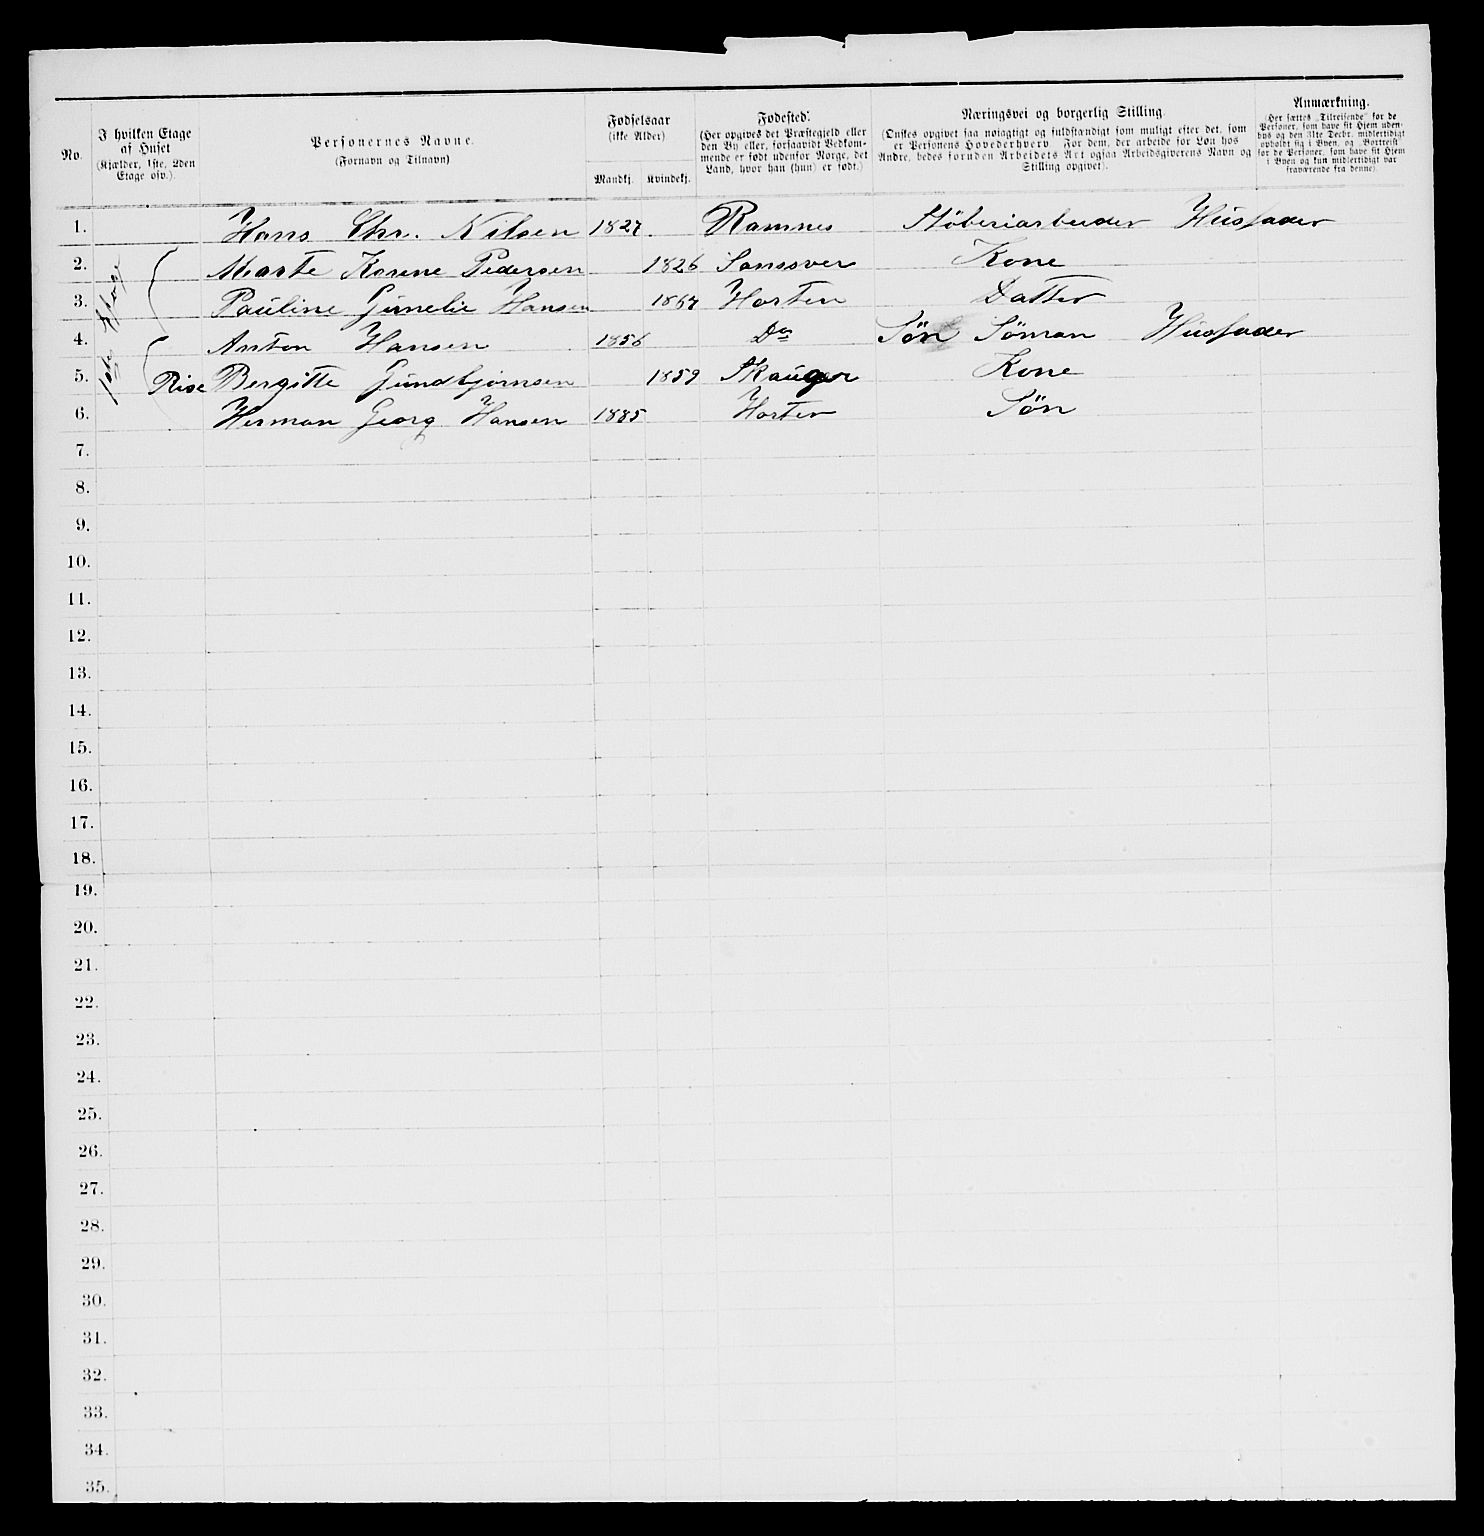 No.
I hvilken Etage
af Huset
(Kjælder, 1ste, 2den
Etage osv.).
Personernes Navne.
(Fornavn og Tilnavn)
Fødselsaar
(ikke Alder)
Mandkj. Kvindekj.
Fødested.
(Her opgives det Præstegjeld eller
den By eller, forsaavidt Vedkom-
mende er født udenfor Norge, det
Land, hvor han (hun) er født.)
Næringsvei og borgerlig Stilling.
(Ønskes opgivet saa nøiagtigt og fuldstændigt som muligt efter det, som
er Personens Hovederhverv. For dem, der arbeide for Løn hos
Andre, bedes foruden Arbeidets Art ogsaa Arbeidsgiverens Navn og
Stilling opgivet).
Anmærkning.
(Her sættes „Tilreisende" for de
Personer, som have sit Hjem uden-
bys og den 31te Decbr. midlertidigt
opholdt sig i Byen, og „Bortreist"
for de Personer, som have sit Hjem
i Byen og kun midlertidigt var
fraværende fra denne).
1. Hans Chr. Nilsen 1827. Ramnes Støberiarbeider Husfader
2. Marte Karene Pedersen 1826 Sansver Kone
3. Pauline Gunelie Hansen 1867 Horten Datter
1ste Etage
4. Anton Hansen 1856 Do Søn Søman Husfader
5. Rise Bergitte Gundbjørnsen 1859 Skauger Kone
6. Herman Georg Hansen 1885 Horten Søn
7.
8.
9.
10.
11.
12.
13.
14.
15.
16.
17.
18.
19.
20.
21.
22.
23.
24.
25.
26.
27.
28.
29.
30.
31.
32.
33.
34.
35.